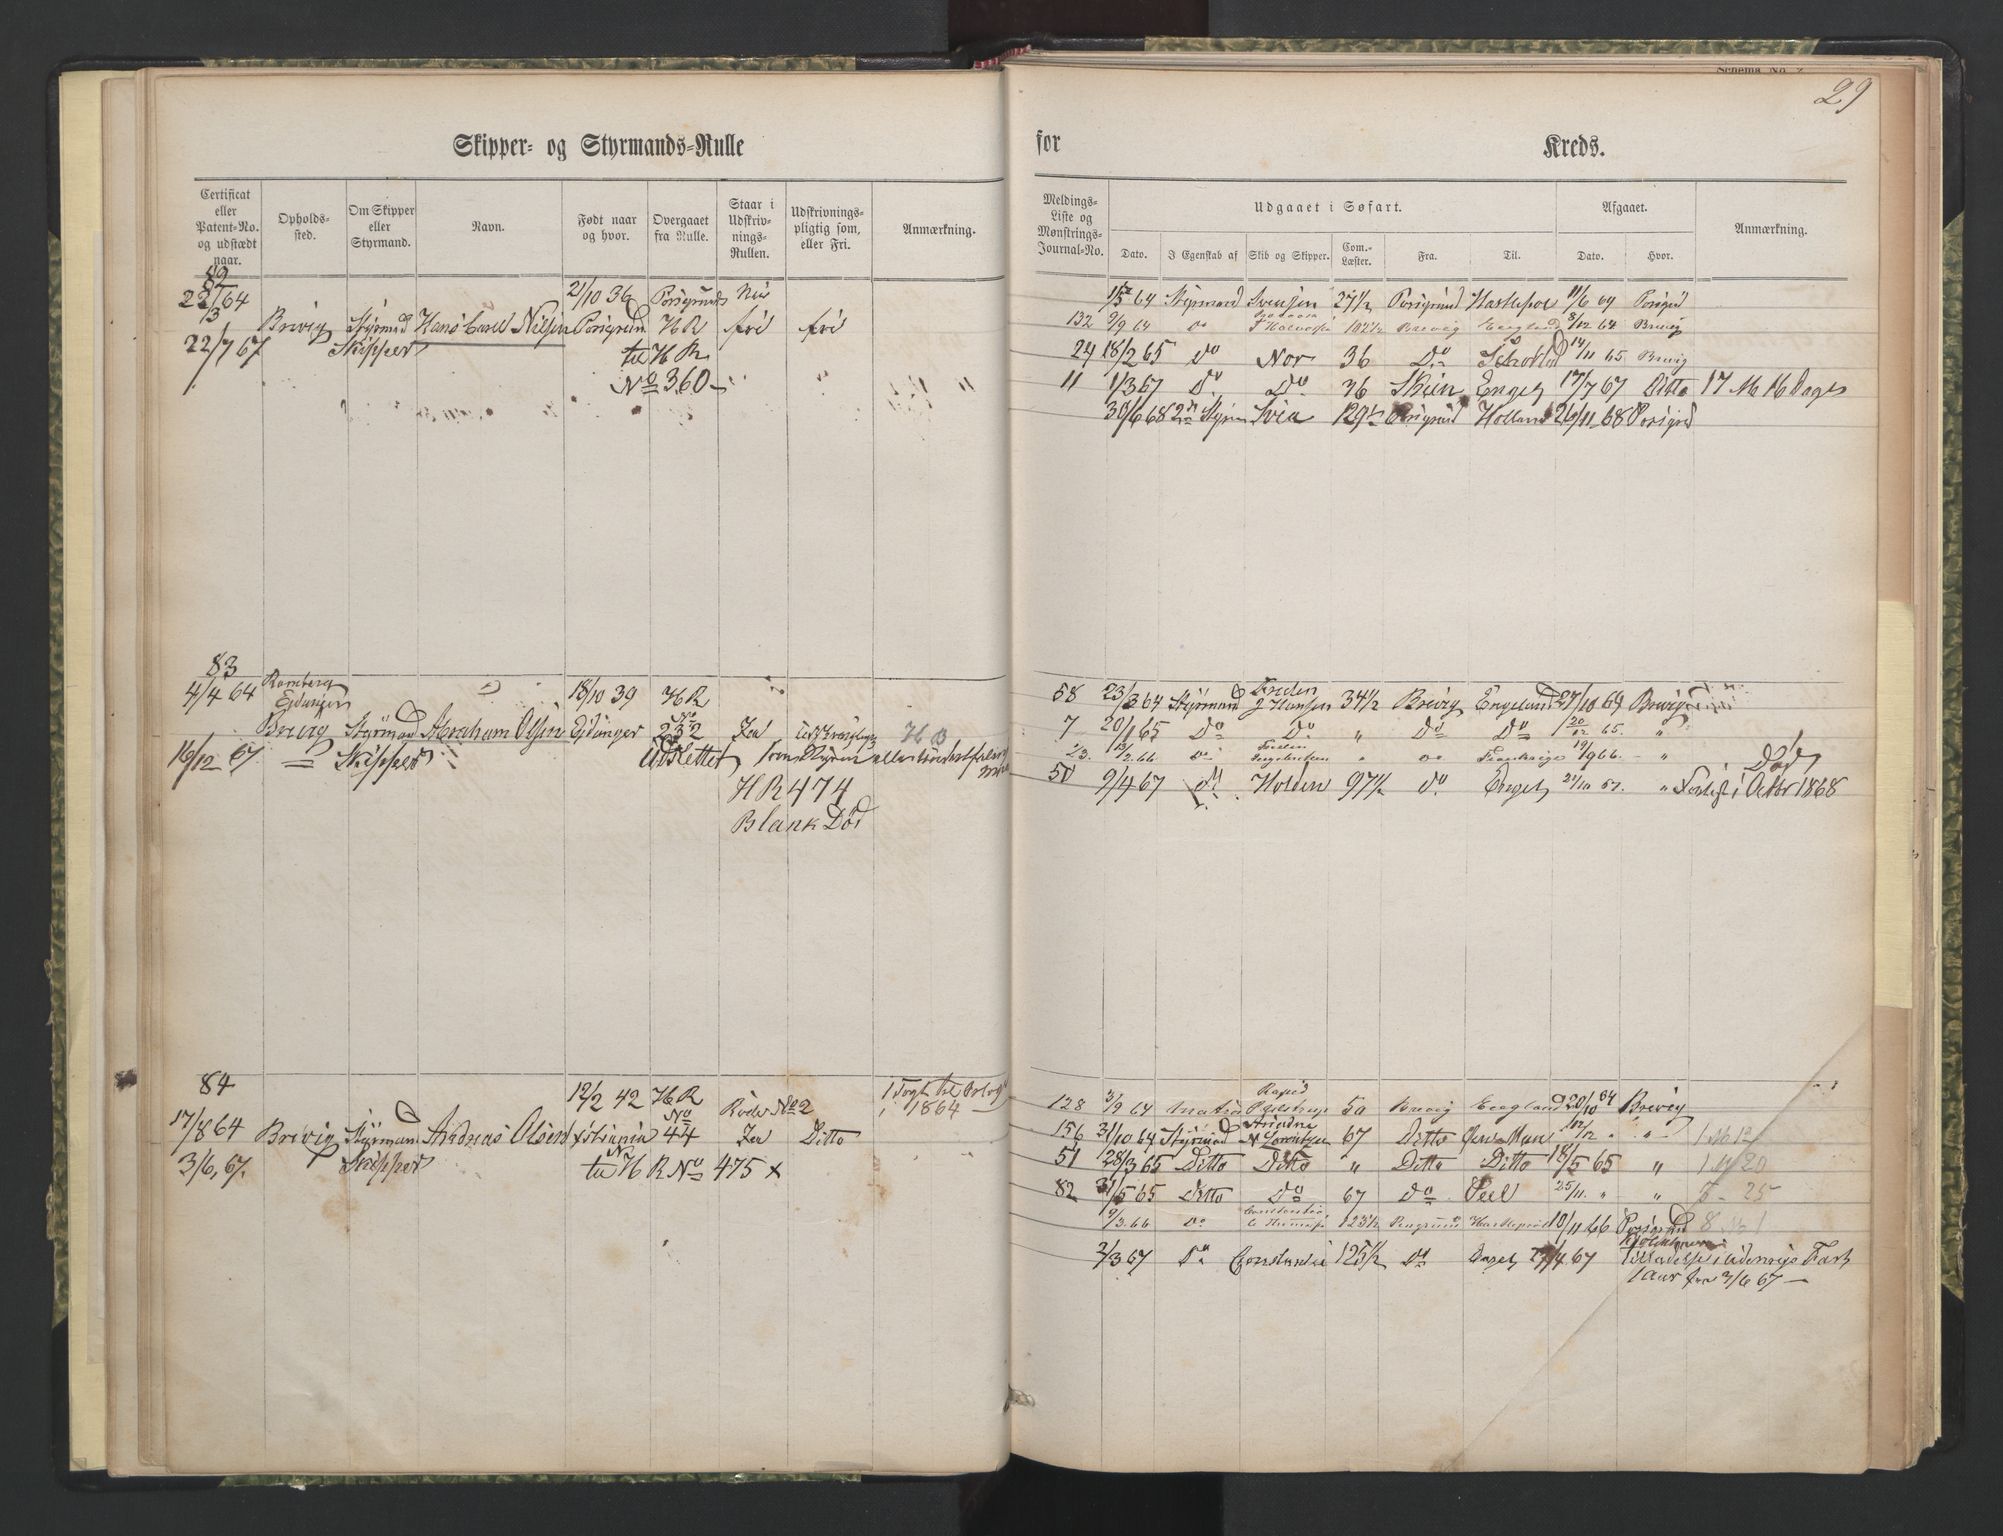 Schema No. 7
29
Skipper- og Styrmands-Rulle
for Kreds.
Certificat eller Patent-No. og udstædt naar.
Opholds-sted.
Om Skipper eller Styrmand.
Navn.
Født naar og hvor.
Overgaaet fra Rulle.
Staar i Udskriv-nings-Rullen.
Udskrivnings-pligtig som, eller Fri.
Anmærkning.
Meldings-Liste og Mønstrings-Journal-No.
Udgaaet i Søfart.
Dato. I Egenskab af Skib og Skipper. Com.-Læster. Fra. Til.
Afgaaet.
Dato. Hvor.
Anmærkning.
82
22/3 64 21/10 36 Porsgrunds Nei
Brevig Styrmand Hans Carl Nilsen Porsgrund H R fri fri
22/7 67 Skipper til H R
No 360
1/5 64 Styrmand Svensen 27 1/2 Porsgrund 11/6 64 Porsgrund
132 9/9 64 do 102 1/2 Brevig England 8/12 64 Brevig
24 18/2 65 Do Nor 36 Do Skotland 14/11 65 Brevig
11 1/3 67 Do Do 36 Skien Engel 17/7 67 Ditto 17 M 16 Dage
30/6 68 2den Styrm Svea 129 Porsgrund Holland 26/11 68 Porsgrd
83
4/4 64 Ramberg 18/10 39 H R
Eidanger
Brevig Styrmand Abraham Olsen Eidanger No 232 Ja
16/12 67 = Skipper Udslettet som
H R 474
Blank Død
58 23/3 64 Styrmand Freden J Hansen 34 1/2 Brevig England 27/10 64 Brevig
7 20/1 65 Do Do " Do Do 20/12 65. "
23. 13/2 66 Do " do Frankrige 19/9 66. "
50 9/4 67 do Holden 97 1/2 do Engel 21/10 67. " Forlist i Octbr 1868
Død
84
17/8 64 12/2 42 H R Rode No 2 1 Togt til Orlogs
1864
Brevig Styrmand Andreas Olsen Kristiania No 44 Ja Ditto
3/6, 67. Skipper til H R No 475 x
128 3/9 64 Matros Rapid 50 Brevig England 20/10 64 Brevig
156 31/10 64 Styrmand Ariadne N Lorentzen 67 Ditto 12/12 " " 1 M 12
51 28/3 65 Ditto Ditto " Ditto Ditto 18/5 65 " 1 M 20
82 31/5 65 Ditto Do 67 Do Peel 25/11. " " 5 - 25
9/3. 66 Do 125 1/2 10/11 66 Porsgrund 8 M 1
2/3 67 Do Constantia 125 1/2 Do Engel 27/4 67 Tilladelse i udenrigs Fart
1 Aar fra 3/6 67